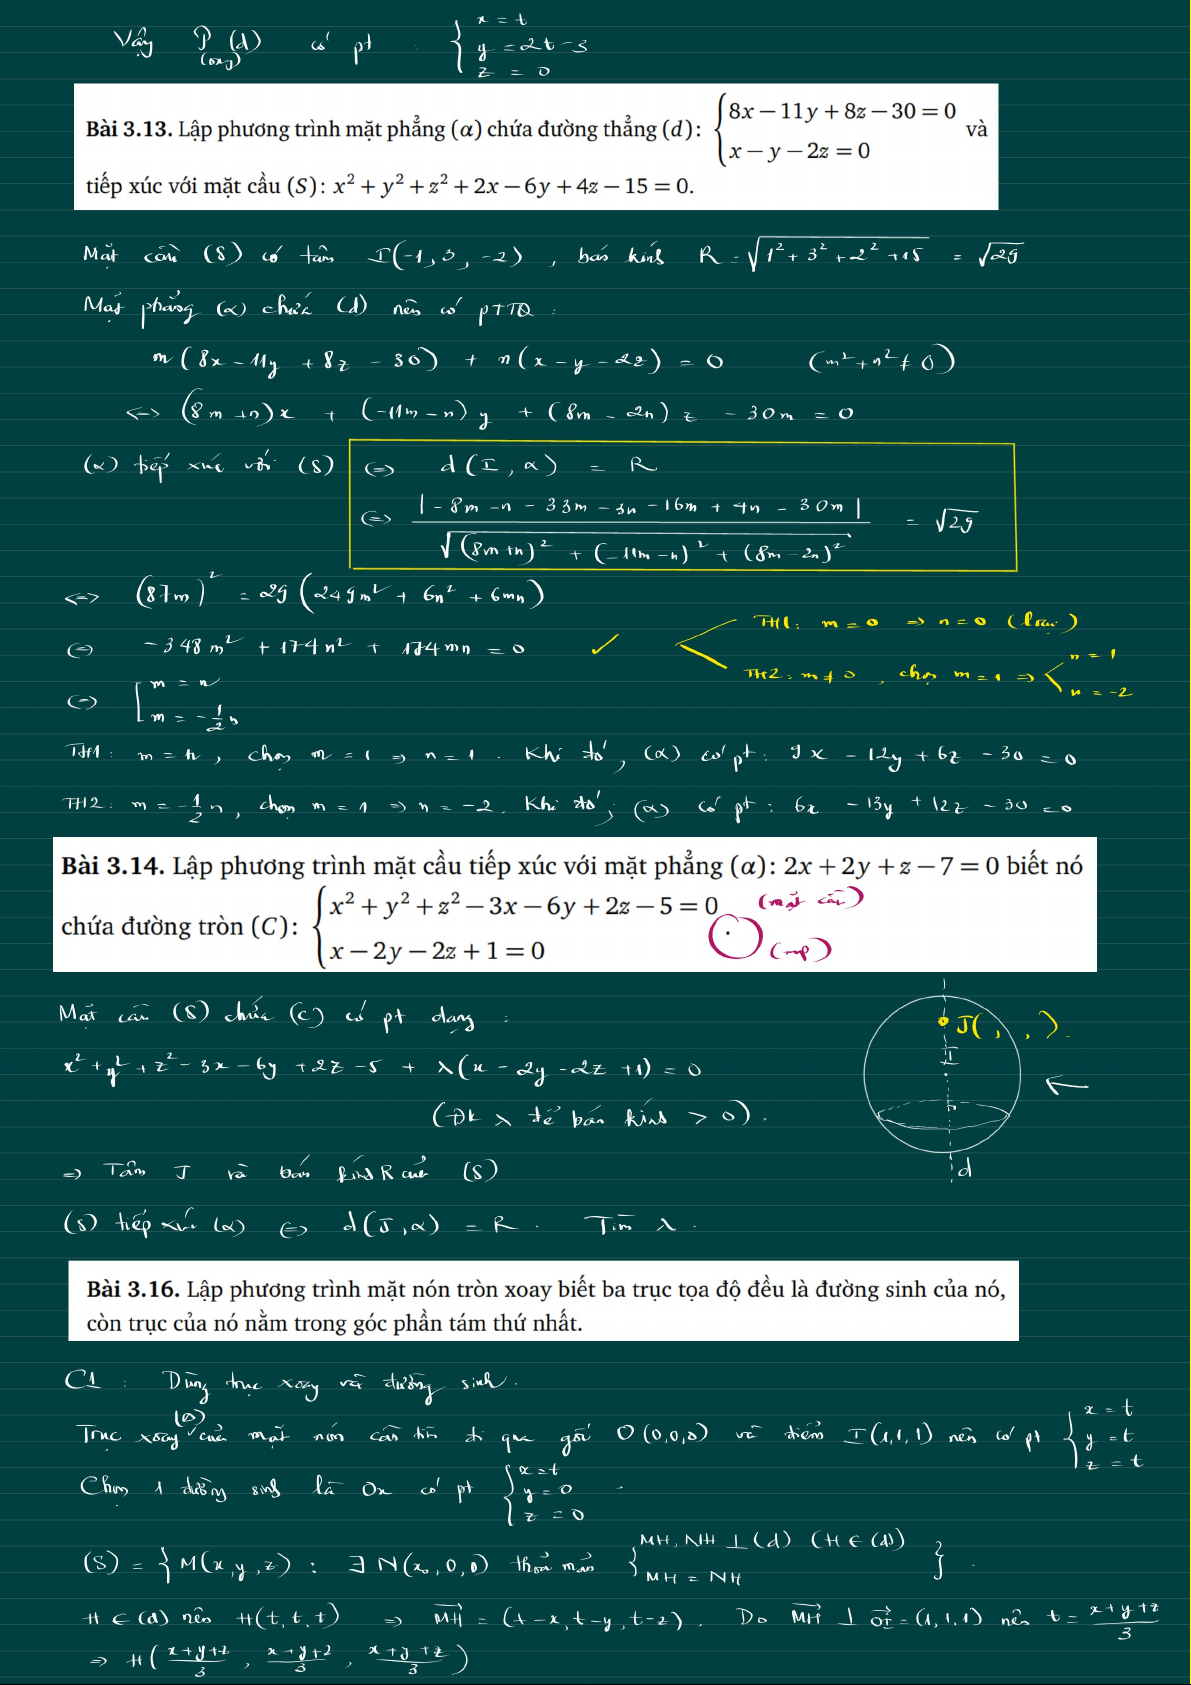 Vậy P(d) có pt : { x = t
(oxy) y = 2t - 3
z = 0
Bài 3.13. Lập phương trình mặt phẳng (α) chứa đường thẳng (d): { 8x − 11y + 8z − 30 = 0 và
x − y − 2z = 0
tiếp xúc với mặt cầu (S): x² + y² + z² + 2x − 6y + 4z − 15 = 0.
Mặt cầu (S) có tâm I(-1, 3, -2), bán kính R = √(1² + 3² + 2² + 15) = √29
Mặt phẳng (α) chứa (d) nên có ptTQ :
m(8x - 11y + 8z - 30) + n(x - y - 2z) = 0 (m² + n² ≠ 0)
<=> (8m + n)x + (-11m - n)y + (8m - 2n)z - 30m = 0
(α) tiếp xúc với (S) <=> d(I, α) = R
<=> |-8m - n - 33m - 3n - 16m + 4n - 30m| / √((8m+n)² + (-11m-n)² + (8m-2n)²) = √29
<=> (87m)² = 29(249m² + 6n² + 6mn)
TH1: m = 0 => n = 0 (loại)
<=> -348m² + 174n² + 174mn = 0 ✓
TH2: m ≠ 0, chọn m = 1 => < n = 1
n = -2
<=> [ m = n
m = -1/2 n
TH1: m = n, chọn m = 1 => n = 1. Khi đó, (α) có pt: 9x - 12y + 6z - 30 = 0
TH2: m = -1/2 n, chọn m = 1 => n = -2. Khi đó, (α) có pt: 6x - 13y + 12z - 30 = 0
Bài 3.14. Lập phương trình mặt cầu tiếp xúc với mặt phẳng (α): 2x + 2y + z − 7 = 0 biết nó
chứa đường tròn (C): { x² + y² + z² − 3x − 6y + 2z − 5 = 0 (mặt cầu)
x − 2y − 2z + 1 = 0 (mp)
Mặt cầu (S) chứa (C) có pt dạng :
J( , , ).
I
x² + y² + z² - 3x - 6y + 2z - 5 + λ(x - 2y - 2z + 1) = 0
(Đk λ để bán kính > 0).
d
=> Tâm J và bán kính R của (S)
(S) tiếp xúc (α) <=> d(J, α) = R. Tìm λ.
Bài 3.16. Lập phương trình mặt nón tròn xoay biết ba trục tọa độ đều là đường sinh của nó,
còn trục của nó nằm trong góc phần tám thứ nhất.
C1 : Dùng trục xoay và đường sinh.
Trục xoay (Δ) của mặt nón cần tìm đi qua gốc O(0,0,0) và điểm I(1,1,1) nên có pt { x = t
y = t
z = t
Chọn 1 đường sinh là Ox có pt { x = t
y = 0
z = 0
(S) = { M(x, y, z) : ∃ N(x₀, 0, 0) thoả mãn { MH, NH ⊥ (d) (H ∈ (d))
MH = NH }.
H ∈ (d) nên H(t, t, t) => MH = (t - x, t - y, t - z). Do MH ⊥ OI = (1,1,1) nên t = (x+y+z)/3
=> H( (x+y+z)/3, (x+y+z)/3, (x+y+z)/3 )